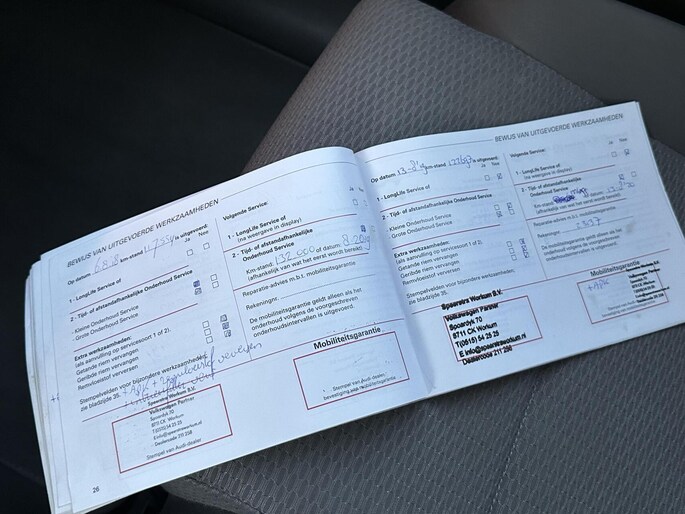 BEWIJS VAN UITGEVOERDE WERKZAAMHEDEN
Op datum 6.8.18 km-stand uitgevoerd:
Ja Nee
1 - LongLife Service of
2 - Tijd- of afstandafhankelijke Onderhoud Service
- Kleine Onderhoud Service
- Grote Onderhoud Service
Extra werkzaamheden:
(als aanvulling op servicesoort 1 of 2).
Getande riem vervangen
Geribde riem vervangen
Remvloeistof verversen
Stempelvelden voor bijzondere werkzaamheden:
zie bladzijde 35.
+ APK +
Spaarstra Workum B.V.
Volkswagen Partner
Spoardyk 70
8711 CK Workum
T(0515) 54 25 25
E info@spaarstraworkum.nl
Dealercode 211 258
Stempel van Audi-dealer
26
Volgende Service:
Ja Nee
1 - LongLife Service of
(na weergave in display)
2 - Tijd- of afstandafhankelijke
Onderhoud Service
Km-stand: 132.000 of datum
(afhankelijk van wat het eerst wordt bereikt)
Reparatie-advies m.b.t. mobiliteitsgarantie
Rekeningnr.
De mobiliteitsgarantie geldt alleen als het
onderhoud volgens de voorgeschreven
onderhoudsintervallen is uitgevoerd.
Mobiliteitsgarantie
Stempel van Audi-dealer
bevestiging van mobiliteitsgarantie
BEWIJS VAN UITGEVOERDE WERKZAAMHEDEN
Op datum km-stand uitgevoerd:
Ja Nee
1 - LongLife Service of
2 - Tijd- of afstandafhankelijke Onderhoud Service
- Kleine Onderhoud Service
- Grote Onderhoud Service
Extra werkzaamheden:
(als aanvulling op servicesoort 1 of 2).
Getande riem vervangen
Geribde riem vervangen
Remvloeistof verversen
Stempelvelden voor bijzondere werkzaamheden:
zie bladzijde 35.
Spaarstra Workum B.V.
Volkswagen Partner
Spoardyk 70
8711 CK Workum
T(0515) 54 25 25
E info@spaarstraworkum.nl
Dealercode 211 258
Volgende Service:
Ja Nee
1 - LongLife Service of
(na weergave in display)
2 - Tijd- of afstandafhankelijke
Onderhoud Service
Km-stand: of datum
(afhankelijk van wat het eerst wordt bereikt)
Reparatie-advies m.b.t. mobiliteitsgarantie
Rekeningnr.
De mobiliteitsgarantie geldt alleen als het
onderhoud volgens de voorgeschreven
onderhoudsintervallen is uitgevoerd.
Mobiliteitsgarantie
+ APK
Spaarstra Workum B.V.
Volkswagen Partner